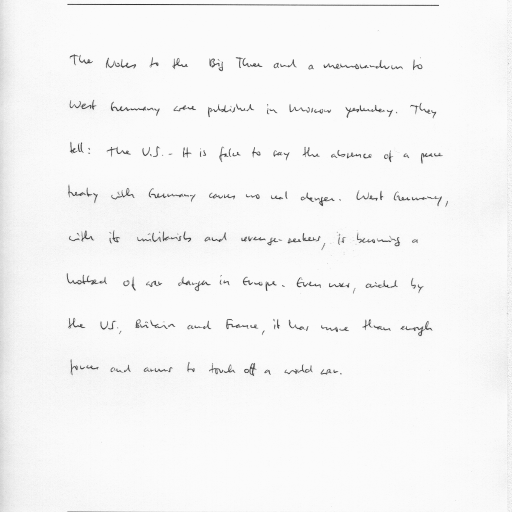 The Notes to the Big Three and a memorandum to
West Germany were published in Moscow yesterday. They
tell: the U.S. - It is false to say the absence of a peace
treaty with Germany causes no real danger. West Germany,
with its militarists and revenge-seekers, is becoming a
hotbed of war danger in Europe. Even now, aided by
the U.S., Britain and France, it has more than enough
forces and arms to touch off a world war.